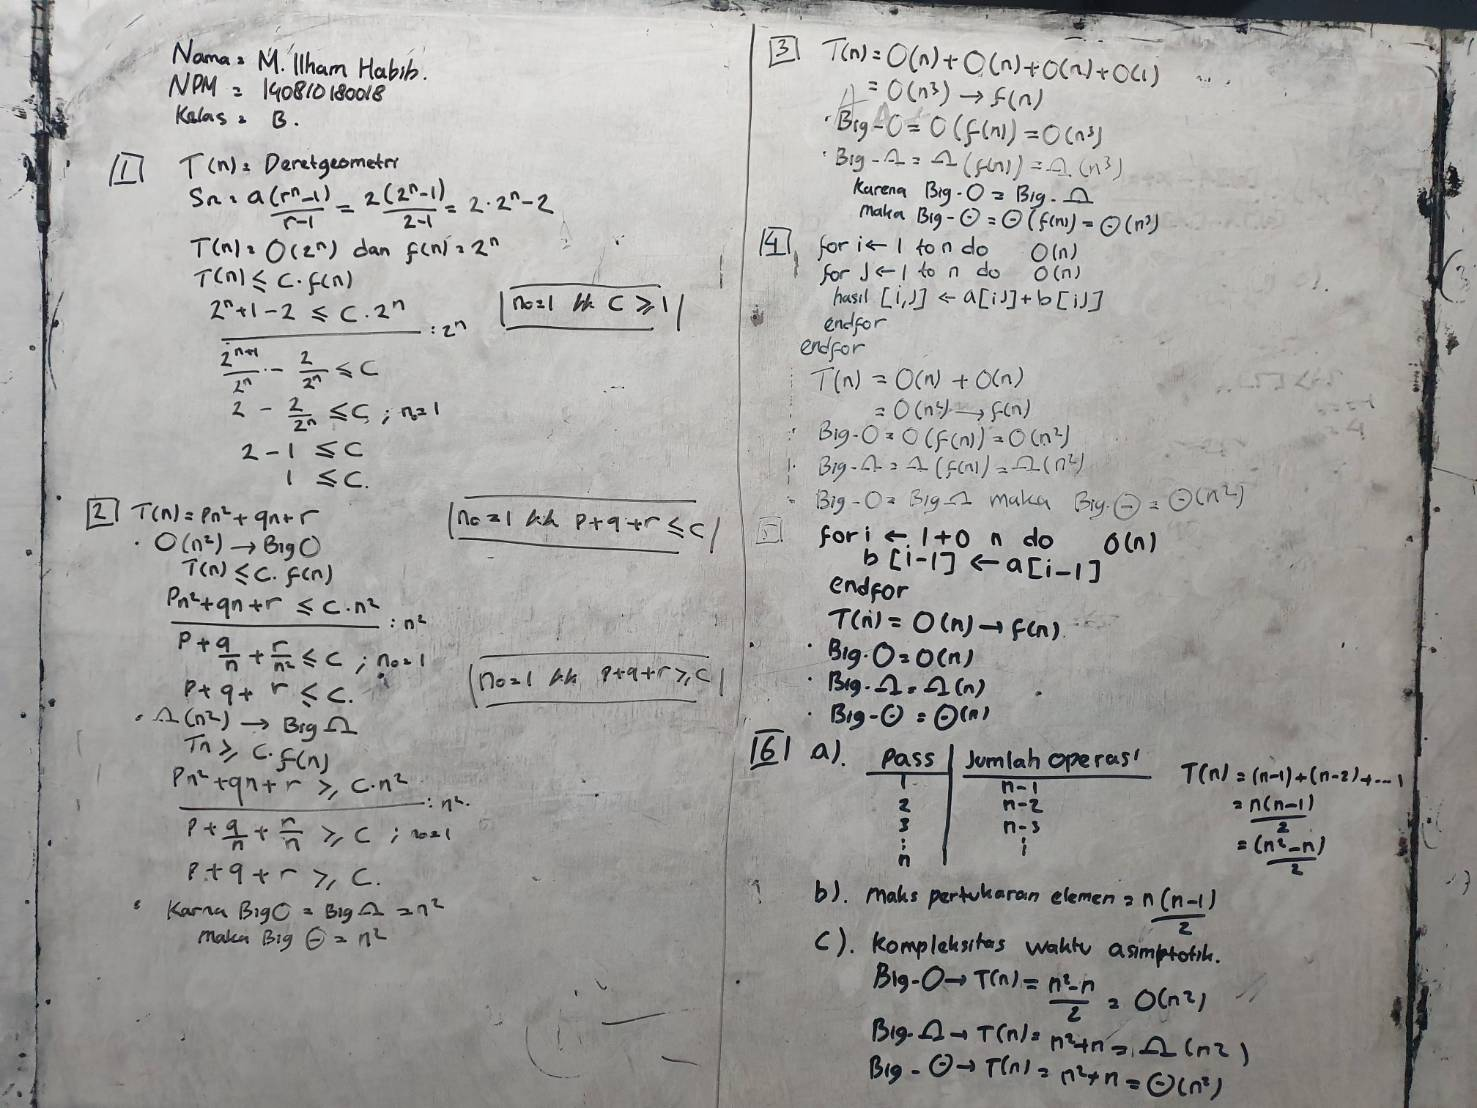 Nama = M. Ilham Habib.
NPM = 140810180018
Kelas = B.
1 T(n) = Deret geometri
Sn = a(rⁿ-1)/r-1 = 2(2ⁿ-1)/2-1 = 2·2ⁿ-2
T(n) = O(2ⁿ) dan f(n) = 2ⁿ
T(n) ≤ C. f(n)
2ⁿ+1-2 ≤ C.2ⁿ : 2ⁿ
|n₀=1 && C ≥ 1|
2ⁿ⁺¹/2ⁿ - 2/2ⁿ ≤ C
2 - 2/2ⁿ ≤ C ; n=1
2-1 ≤ C
1 ≤ C.
2 T(n) = Pn² + qn + r
. O(n²) → Big O
|n₀=1 && P+q+r ≤ C|
T(n) ≤ C. f(n)
Pn²+qn+r ≤ C.n² : n²
P + q/n + r/n² ≤ C ; n₀=1
P + q + r ≤ C.
|n₀=1 && P+q+r ≥ C|
. Ω(n²) → Big Ω
Tn ≥ C. f(n)
Pn²+qn+r ≥ C.n² : n².
P + q/n + r/n ≥ C ; n₀=1
P + q + r ≥ C.
Karna Big O = Big Ω = n²
maka Big Θ = n²
3 T(n) = O(n) + O(n) + O(n) + O(1)
= O(n³) → f(n)
. Big-O = O(f(n)) = O(n³)
. Big-Ω = Ω(f(n)) = Ω(n³)
Karena Big-O = Big-Ω
maka Big-Θ = Θ(f(n)) = Θ(n³)
4 for i ← 1 to n do O(n)
for J ← 1 to n do O(n)
hasil [i,J] ← a[iJ] + b[iJ]
endfor
endfor
T(n) = O(n) + O(n)
= O(n²) → f(n)
. Big-O = O(f(n)) = O(n²)
. Big-Ω = Ω(f(n)) = Ω(n²)
- Big-O = Big Ω maka Big-Θ = Θ(n²)
5 for i ← 1 to n do O(n)
b[i-1] ← a[i-1]
endfor
T(n) = O(n) → f(n)
. Big-O = O(n)
. Big-Ω = Ω(n)
. Big-Θ = Θ(n)
6 a). Pass | Jumlah operasi
1 | n-1
2 | n-2
3 | n-3
⋮ | ⋮
n
T(n) = (n-1)+(n-2)+...1
= n(n-1)/2
= (n²-n)/2
b). maks pertukaran elemen = n(n-1)/2
c). kompleksitas waktu asimptotik.
Big-O → T(n) = n²-n/2 = O(n²)
Big-Ω → T(n) = n²+n = Ω(n²)
Big-Θ → T(n) = n²+n = Θ(n²)